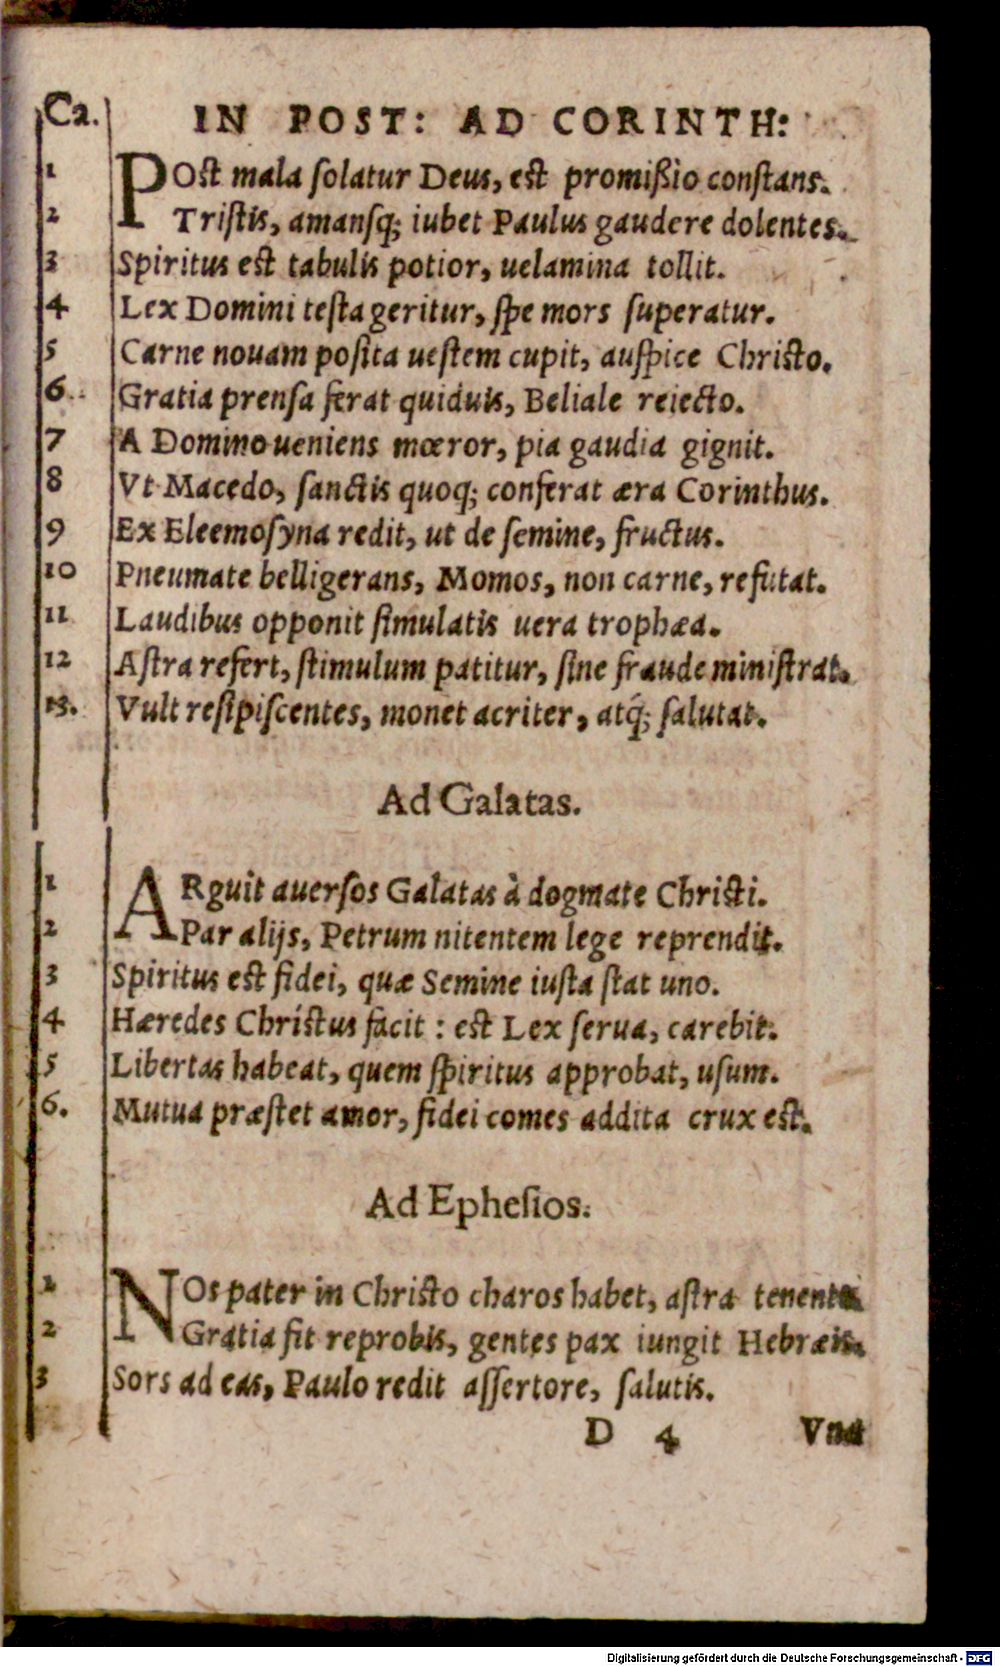 Ca. IN POST: AD CORINTH:
1 POst mala ſolatur Deus, est promißio conſtans.
2 Triſtis, amansq; iubet Paulus gaudere dolentes.
3 Spiritus est tabulis potior, uelamina tollit.
4 Lex Domini teſta geritur, ſpe mors ſuperatur.
5 Carne nouam poſita ueſtem cupit, auſpice Chriſto.
6 Gratia prenſa ferat quiduis, Beliale reiecto.
7 A Domino ueniens mœror, pia gaudia gignit.
8 Vt Macedo, ſanctis quoq; conferat æra Corinthus.
9 Ex Eleemoſyna redit, ut de ſemine, fructus.
10 Pneumate belligerans, Momos, non carne, refutat.
11 Laudibus opponit ſimulatis uera trophæa.
12 Aſtra refert, ſtimulum patitur, ſine fraude miniſtrat.
13. Vult reſipiſcentes, monet acriter, atq́; ſalutat.
Ad Galatas.
1 ARguit auerſos Galatas à dogmate Chriſti.
2 Par alijs, Petrum nitentem lege reprendit.
3 Spiritus est fidei, quæ Semine iuſta ſtat uno.
4 Hæredes Chriſtus facit : est Lex ſerua, carebit.
5 Libertas habeat, quem ſpiritus approbat, uſum.
6. Mutua præſtet amor, fidei comes addita crux est.
Ad Epheſios.
1 NOs pater in Chriſto charos habet, aſtra tenentes.
2 Gratia fit reprobis, gentes pax iungit Hebræis.
3 Sors ad eas, Paulo redit aſſertore, ſalutis.
D 4 Vna
Digitalisierung gefördert durch die Deutsche Forschungsgemeinschaft - DFG